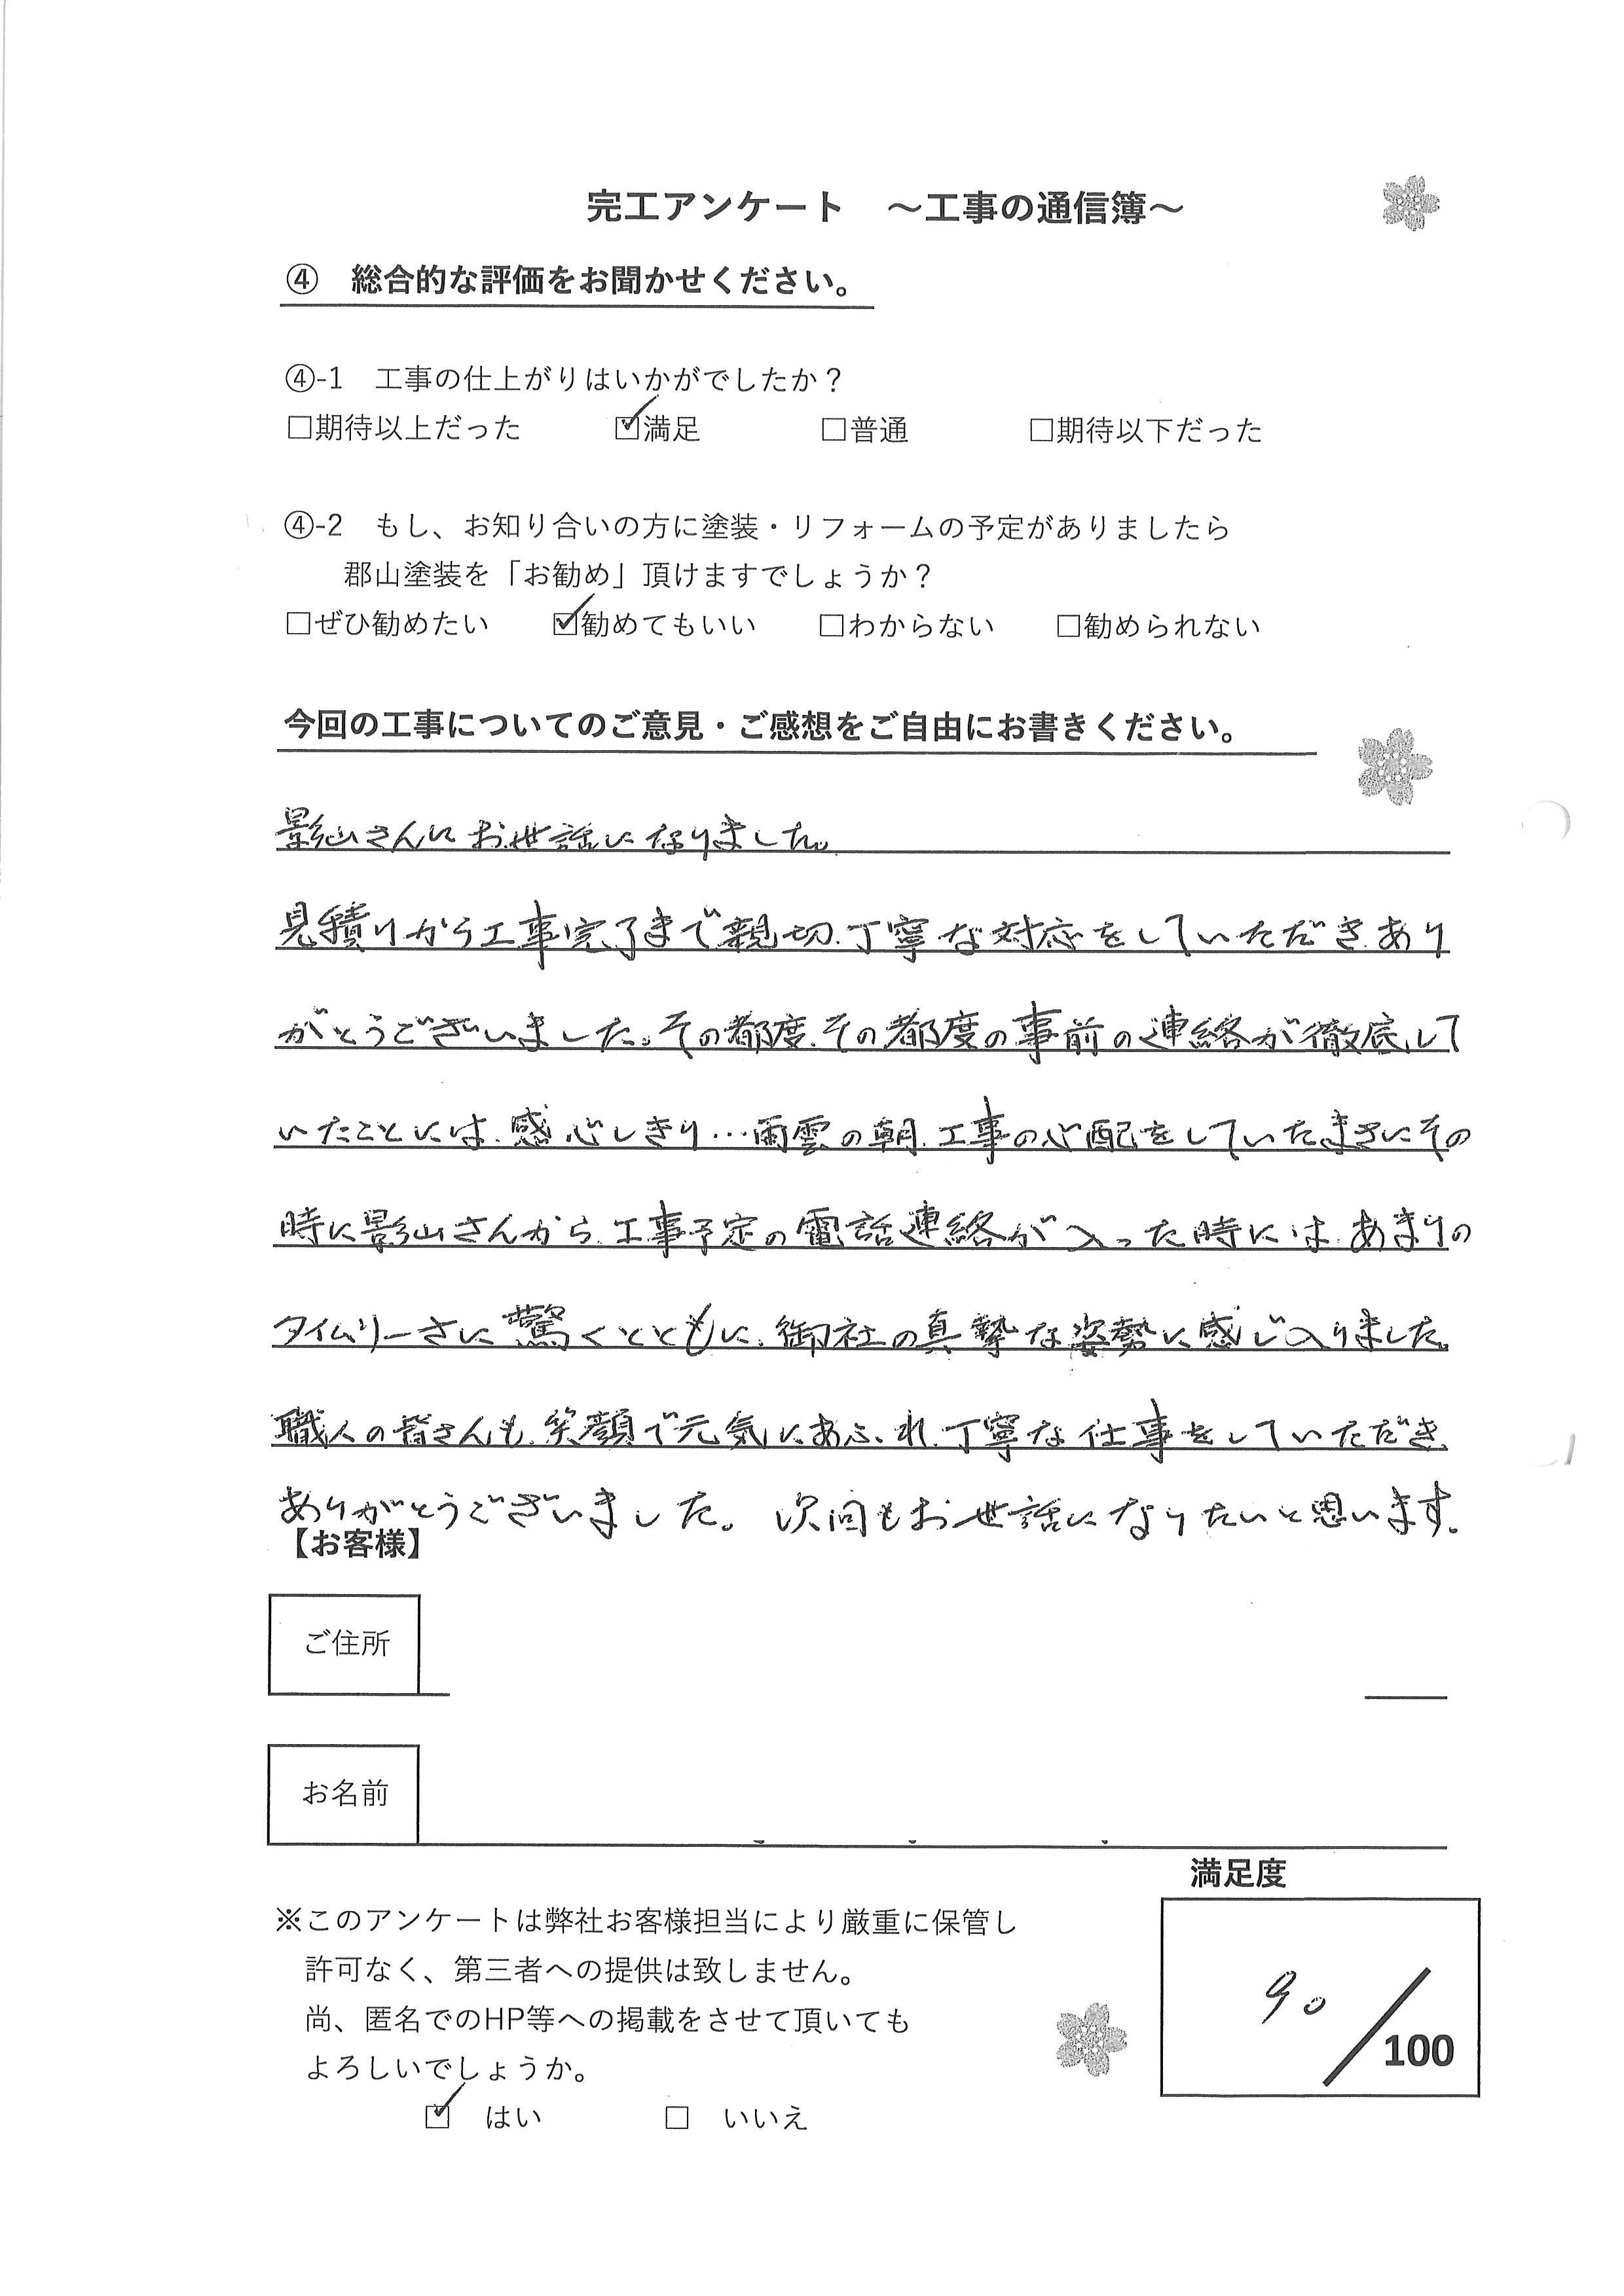 完工アンケート ～工事の通信簿～
④ 総合的な評価をお聞かせください。
④-1 工事の仕上がりはいかがでしたか？
□期待以上だった ☑満足 □普通 □期待以下だった
④-2 もし、お知り合いの方に塗装・リフォームの予定がありましたら
郡山塗装を「お勧め」頂けますでしょうか？
□ぜひ勧めたい ☑勧めてもいい □わからない □勧められない
今回の工事についてのご意見・ご感想をご自由にお書きください。
影山さんにお世話になりました。
見積りから工事完了まで親切、丁寧な対応をしていただき、あり
がとうございました。その都度、その都度の事前の連絡が徹底して
いたことには、感心しきり…雨雲の朝、工事の心配をしていたまさにその
時に影山さんから、工事予定の電話連絡が入った時には、あまりの
タイムリーさに驚くとともに、御社の真摯な姿勢に感じ入りました。
職人の皆さんも、笑顔で元気にあふれ、丁寧な仕事をしていただき、
ありがとうございました。次回もお世話になりたいと思います。
【お客様】
ご住所
お名前
満足度
※このアンケートは弊社お客様担当により厳重に保管し
許可なく、第三者への提供は致しません。
尚、匿名でのHP等への掲載をさせて頂いても
よろしいでしょうか。
90／100
☑ はい □ いいえ